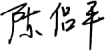 陈侣平